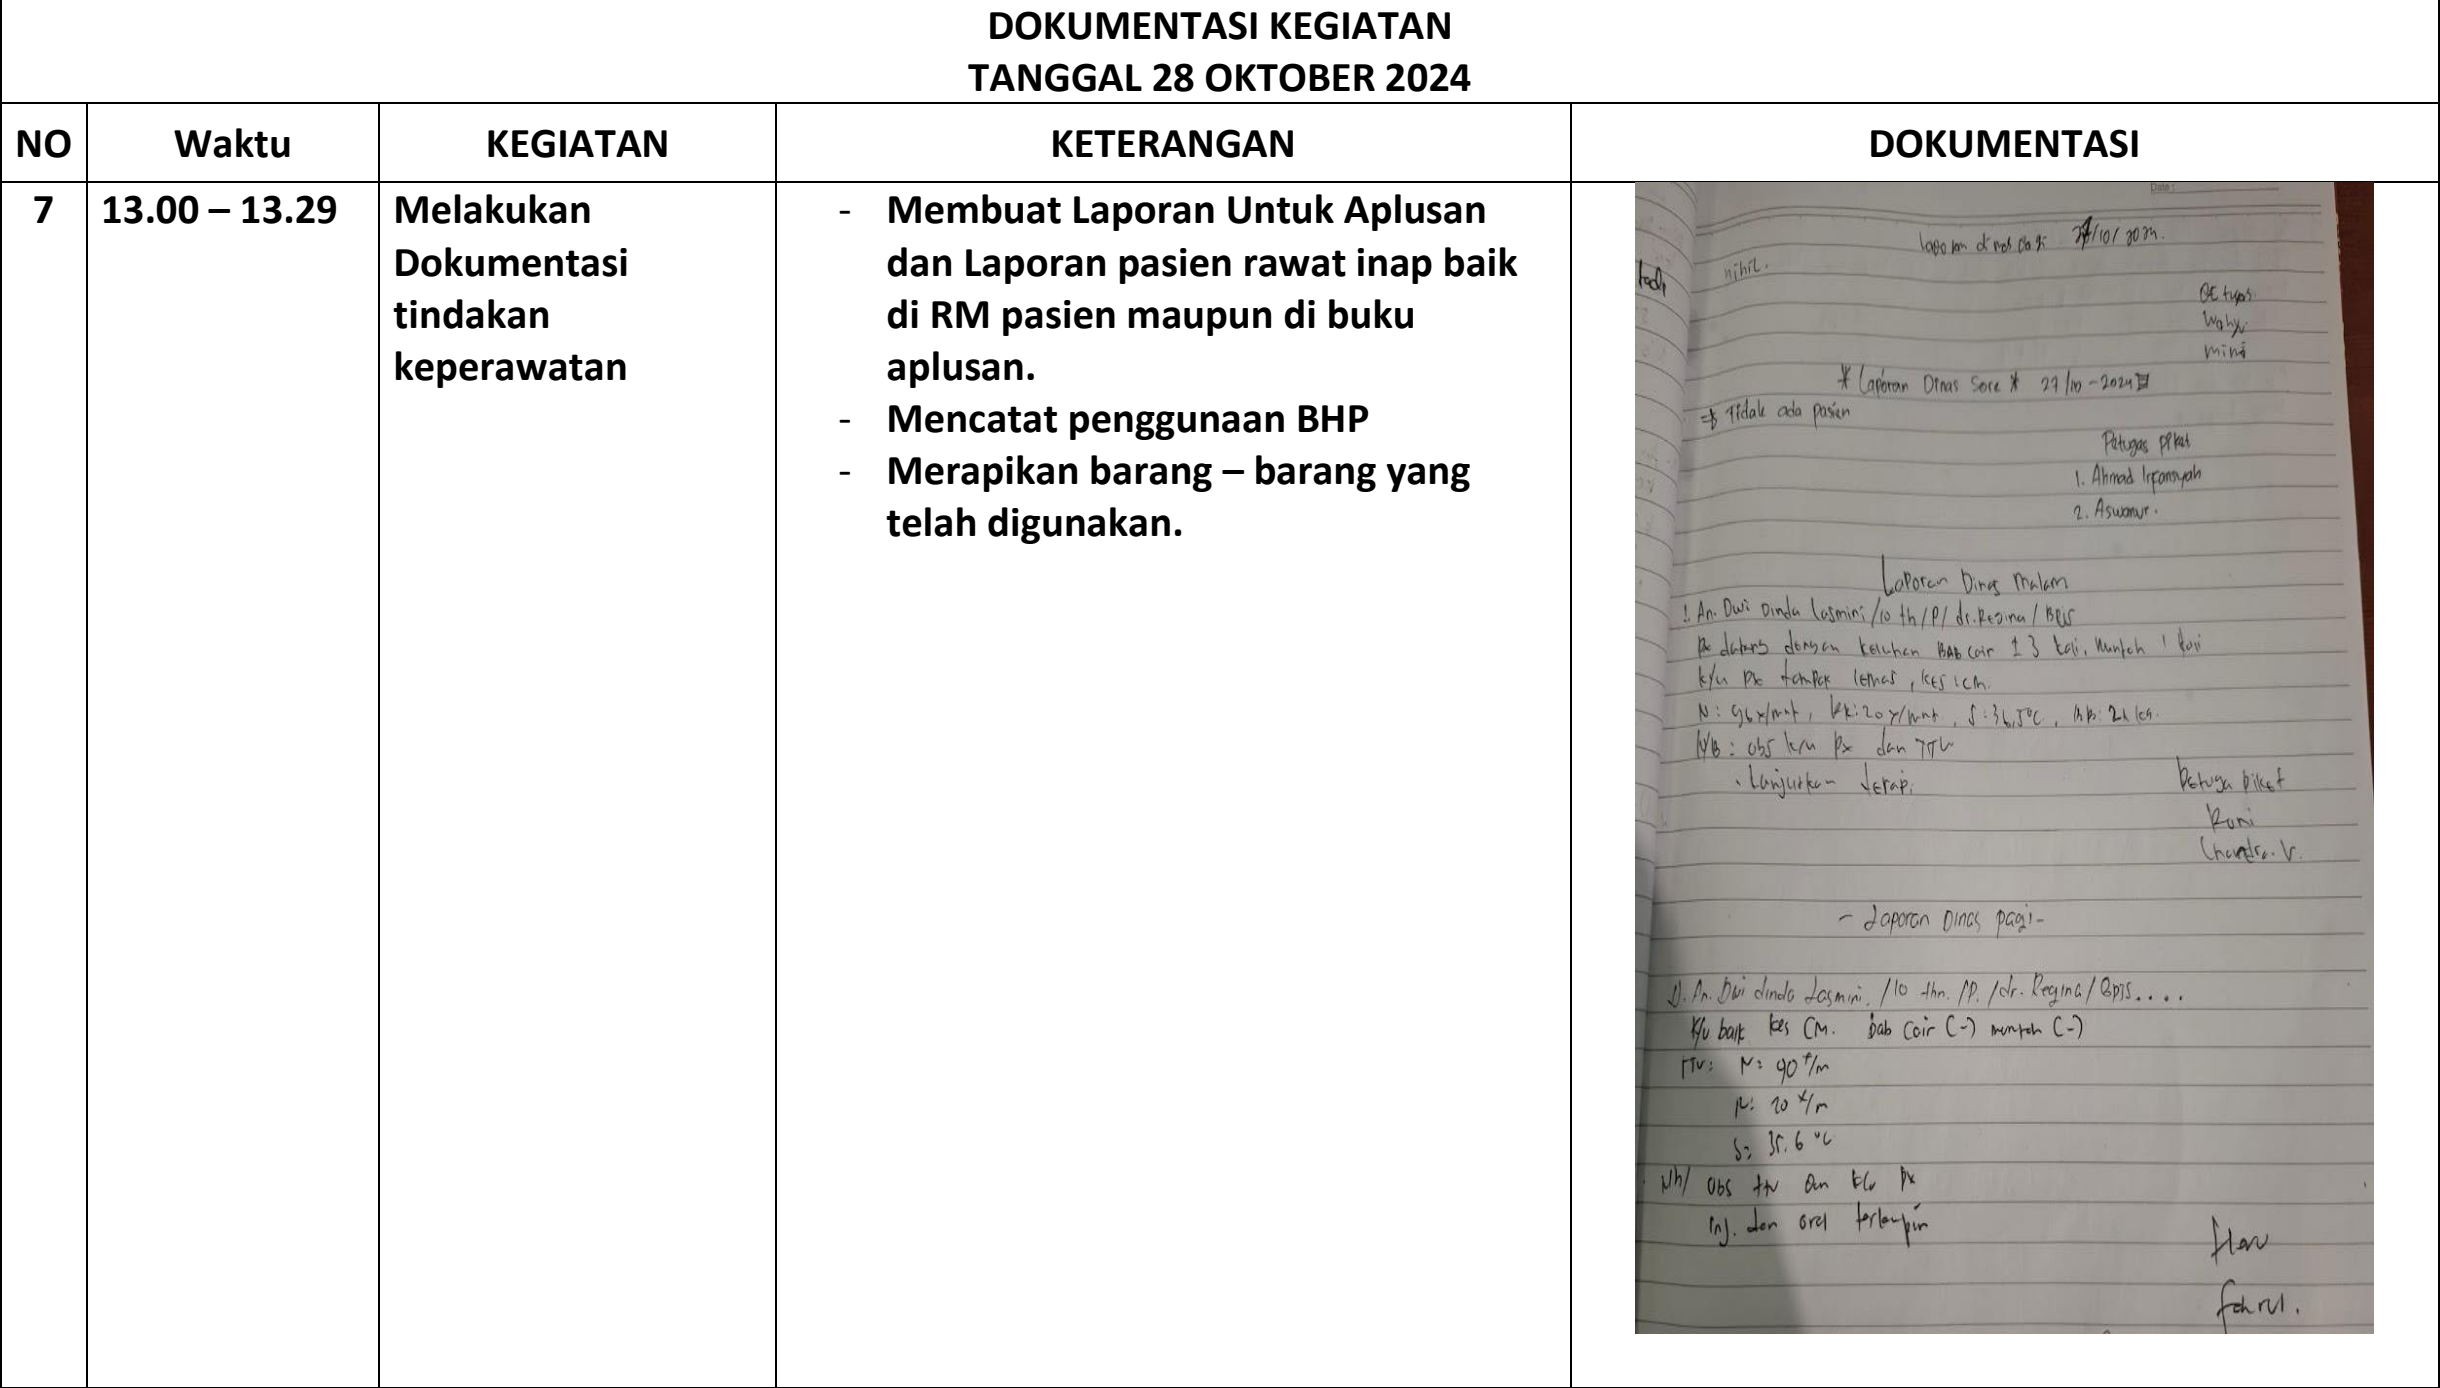 DOKUMENTASI KEGIATAN
TANGGAL 28 OKTOBER 2024
NO
Waktu
KEGIATAN
KETERANGAN
DOKUMENTASI
7
13.00 – 13.29
Melakukan
Dokumentasi
tindakan
keperawatan
- Membuat Laporan Untuk Aplusan
dan Laporan pasien rawat inap baik
di RM pasien maupun di buku
aplusan.
- Mencatat penggunaan BHP
- Merapikan barang – barang yang
telah digunakan.
Date :
/10/2024.
nihil.
Wahyu
* Laporan Dinas Sore * 27/10-2024
Tidak ada pasien
Petugas piket
1. Ahmad Irfansyah
2. Aswanur.
Laporan Dinas Malam
1. An. Dwi Dinda Lasmini /10 th/P/ dr.Regina / BPJS
Px datang dengan keluhan BAB cair ± 3 kali, Muntah 1 kali
k/u px tampak lemas, kes : cm.
N: 96x/mnt, RR: 20x/mnt, S: 36,5°C, BB:
N/B : obs k/u px dan TTV
. Lanjutkan terapi
Petuga piket
Roni
Chandra. V.
- Laporan Dinas pagi -
1). An. Dwi dinda Lasmini. /10 thn. /P. /dr. Regina / BPJS....
K/u baik kes CM. bab cair (-) muntah (-)
TTV: N: 90 x/m
R: 20 x/m
S: 35.6 °C
obs ttv dan k/u px
inj. dan oral
Fahrul.